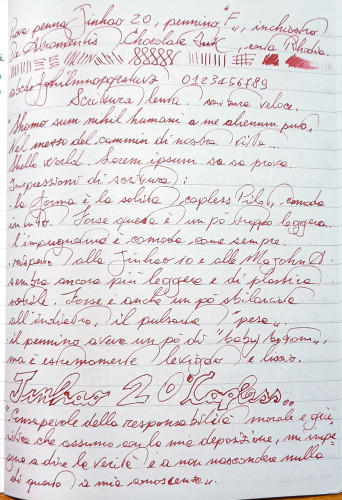 Prova penna Jinhao 20, pennino "F", inchiostro
De Atramentis Chocolate Ink, carta Rhodia.
abcdefghilmnopqrstuvz 0123456789
Scrittura lenta. scrittura veloce.
"Homo sum nihil humani a me alienum puto,
Nel mezzo del cammin di nostra vita...
Hello world. Lorem ipsum sa sa prova.
Impressioni di scrittura:
. la forma è la solita capless Pilot, comoda
in tutto. Forse questa è un pò troppo leggera.
. l'impugnatura è comoda, come sempre.
. rispetto alla Jinhao 10 e alle Majohn A1
sembra ancora più leggera e di plastica
sottile. Forse è anche un pò sbilanciata
all'indietro, il pulsante "pesa".
il pennino aveva un pò di "baby bottom",
ma è estremamente levigato e liscio.
Jinhao 20 Capless..
"Consapevole della responsabilità morale e giu-
ridica che assumo con la mia deposizione, mi impe-
gno a dire la verità e a non nascondere nulla
di quanto a mia conoscenza".